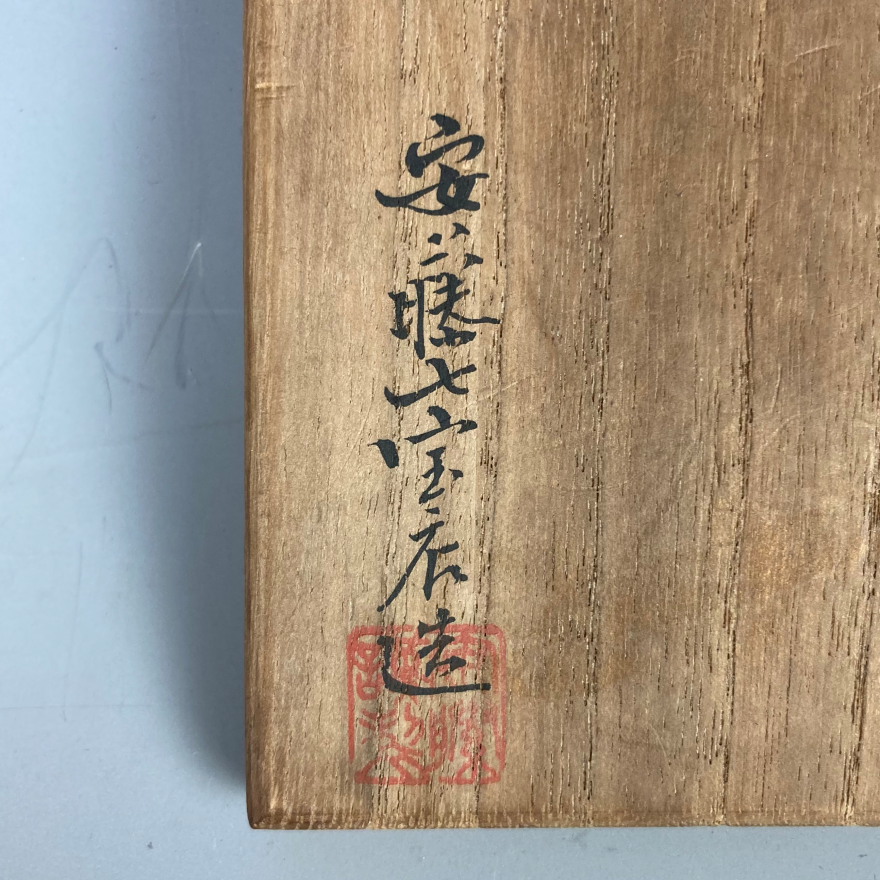 安藤七宝店造